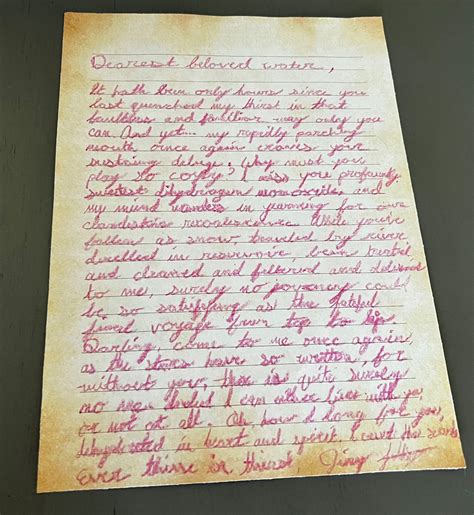 Dearest beloved water,
It hath been only hours since you
last quenched my thirst in that
faultless and familiar way only you
can. And yet... my rapidly parching
mouth once again craves your
sustaining deluge. Why must you
play so coyly? I miss you profoundly,
sweetest dihydrogen monoxide and
my mind wanders in yearning for our
clandestine While you've
fallen as snow, traveled by river
dwelled in reservoir, been treated
and cleaned and filtered and delivered
to me, surely no journey could
be so satisfying as the fateful
final voyage from tap to lip.
Darling, come to me once again
as the stars have so written, for
without you, this is quite surely
no I can either live with you
or not at all. Oh how I long for you,
dehydrated in heart and spirit, I count the seconds
Ever thine in thirst,